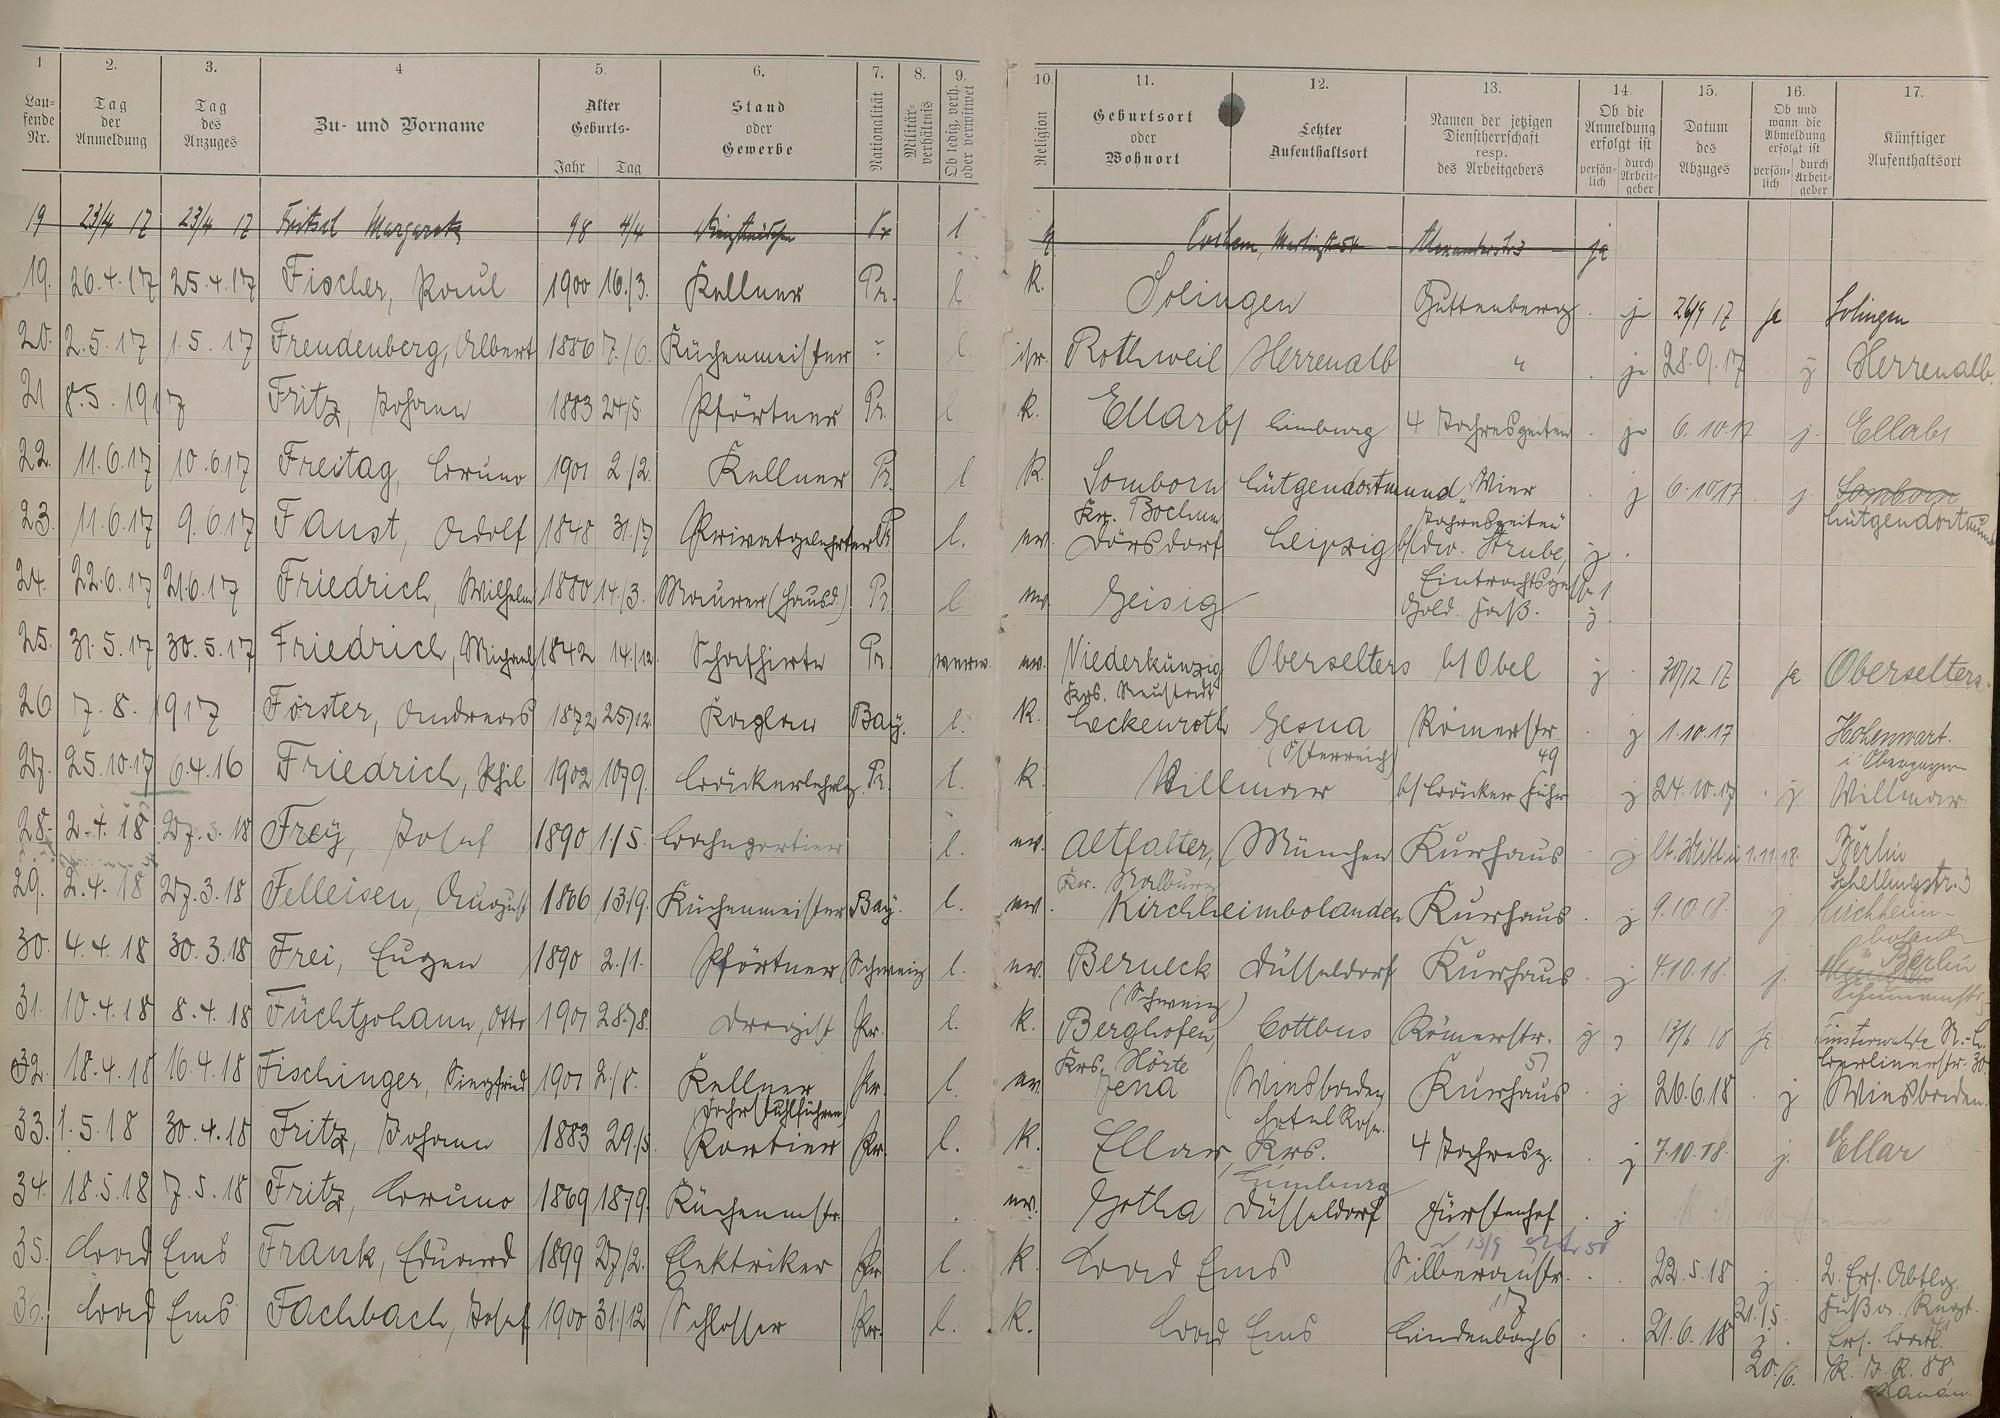 1 2. 3. 4 5. 6. 7. 8. 9. 10. 11. 12. 13. 14. 15. 16. 17.
Laufende Nr. Tag der Anmeldung Tag des Anzuges Zu- und Vorname Alter Geburts- Jahr Tag Stand oder Gewerbe Nationalität Militärverhältnis Ob ledig, verh. oder verwitwet Religion Geburtsort oder Wohnort Letzter Aufenthaltsort Namen der jetzigen Dienstherrschaft resp. des Arbeitgebers Ob die Anmeldung erfolgt ist persönlich durch Arbeitgeber Datum des Abzuges Ob und wann die Abmeldung erfolgt ist persönlich durch Arbeitgeber Künftiger Aufenthaltsort
19 23/4 17 23/4 17 Margarete 98 4/4 Pr l Cochem, ja
19. 26.4.17 25.4.17 Fischer, Paul 1900 16./3. Kellner Pr. l. K. Solingen Guttenberg j 26/9 17 ja Solingen
20. 2.5.17 1.5.17 Freudenberg, Albert 1886 7./6. Küchenmeister " l. isr. Rothweil Herrenalb " j 28.9.17 j Herrenalb.
21 8.5.1917 Fritz, Johann 1883 24/5. Pförtner Pr. l K. Ellar b/ Limburg 4 Jahreszeiten j 6.10.17 j. Ellar b/
22. 11.6.17 10.6.17 Freitag, Bruno 1901 2./2. Kellner Pr. l K. Somborn Kr. Bochum Lütgendortmund "Vier Jahreszeiten" j 6.10.17 j. Somborn Lütgendortmund
23. 11.6.17 9.6.17 Faust, Adolf 1848 31./7 Privatgelehrter Pr. l. ev. Dörsdorf Leipzig b/ Strube, j
24. 22.6.17 21.6.17 Friedrich, Wilhelm 1880 14./3. Maurer (Hausd.) Pr. l ev. Geisig Eintrachtsgasse 1 Gold. Faß. j
25. 31.5.17 30.5.17 Friedrich, Michael 1842 14./12. Schafhirte Pr. verw. ev. Niederkünzig Krs. Neustadt Oberselters b/ Obel j 30/12 17 ja Oberselters.
26 7.8.1917 Förster, Andreas 1872 25./12. Kaplan Bay. l. K. Leckenroth Gesna (Österreich) Römerstr. 49 j 1.10.17 Hohenwart. i Oberbayern
27. 25.10.17 6.4.16 Friedrich, Phil 1902 10/9. Bäckerlehrlg. Pr. l. K. Villmar b/ Bäcker j 24.10.17 j Villmar
28. 2.4.18 27.3.18 Frey, Josef 1890 1./5. Bachportier l. ev. Altfalter, Kr. Nabburg München Kurhaus j 1.11.18. Berlin Schellingstr. 5
29. 2.4.18 27.3.18 Felleisen, August 1866 13/9. Küchenmeister Bay. l. ev. Kirchheimbolanden Kurhaus j 9.10.18. j. Kirchheimboland
30. 4.4.18 30.3.18 Frei, Eugen 1890 2./1. Pförtner Schweiz l. ev. Berneck (Schweiz) Düsseldorf Kurhaus j 4.10.18. j. Berlin
31. 10.4.18 8.4.18 Füchtjohann, Otto 1901 28./8. Drogist Pr. l. K. Berghofen, Krs. Hörte Cottbus Römerstr. 51 j 13/6 18 ja Finsterwalde N.-L. Berlinerstr. 30.
32. 18.4.18 16.4.18 Fischinger, Siegfried 1901 2./8. Kellner Pr. l. ev. Jena Wiesbaden Hotel Rose. Kurhaus j 26.6.18 j Wiesbaden.
33. 1.5.18 30.4.18 Fritz, Johann 1883 29./5. (Fahrstuhlführer) Portier Pr. l. K. Ellar, Krs. Limburg 4 Jahresz. j 7.10.18. j. Ellar
34. 18.5.18 7.5.18 Fritz, Bruno 1869 18/9. Küchenmstr. ev. Gotha Düsseldorf Fürstenhof j
35. Bad Ems Frank, Eduard 1899 27/2. Elektriker Pr l. K. Bad Ems Silberaustr. 17 22.5.18 j 21./5. 2. Ers. Abtlg. Fußa. Regt.
36. Bad Ems Fachbach, Josef 1900 31./12 Schlosser Pr. l. K. Bad Ems Lindenbach 6 21.6.18 j 20./6. Ers. Batl. R. I. R. 88 Hanau.